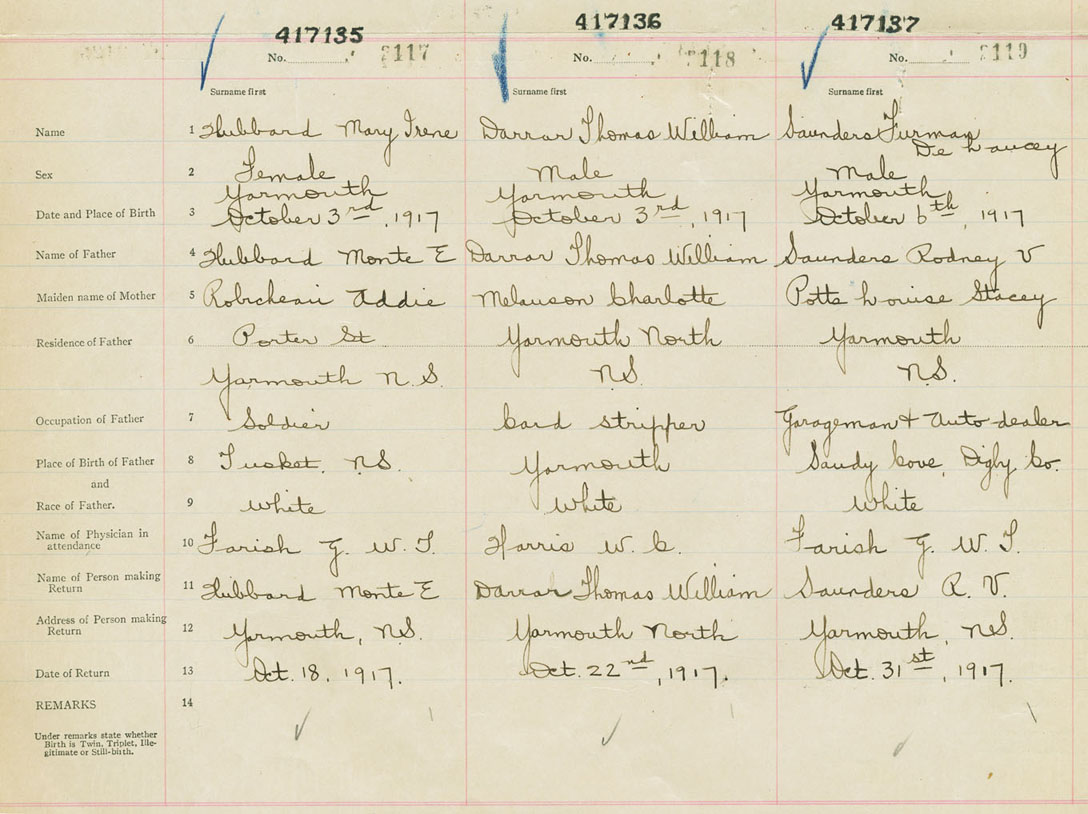 417135 417136 417137
No. 2117 No. 2118 No. 2119
Surname first Surname first Surname first
Name 1 Hubbard Mary Irene Darrar Thomas William Saunders Furman
De Lancey
Sex 2 Female Male Male
Yarmouth Yarmouth Yarmouth
Date and Place of Birth 3 October 3rd, 1917 October 3rd, 1917 October 6th, 1917
Name of Father 4 Hubbard Monte E Darrar Thomas William Saunders Rodney V
Maiden name of Mother 5 Robicheau Addie Melanson Charlotte Potts Louise Stacey
Residence of Father 6 Porter St. Yarmouth North Yarmouth
Yarmouth N.S. N.S. N.S.
Occupation of Father 7 Soldier Card stripper Garageman + Auto-dealer
Place of Birth of Father 8 Tusket, N.S. Yarmouth Sandy Cove, Digby Co.
and
Race of Father. 9 White White White
Name of Physician in
attendance 10 Farish G. W. T. Harris W. C. Farish G. W. T.
Name of Person making
Return 11 Hubbard Monte E Darrar Thomas William Saunders R. V.
Address of Person making
Return 12 Yarmouth, N.S. Yarmouth North Yarmouth, N.S.
Date of Return 13 Oct. 18, 1917. Oct. 22nd, 1917. Oct. 31st, 1917.
REMARKS 14
Under remarks state whether
Birth is Twin, Triplet, Ille-
gitimate or Still-birth.